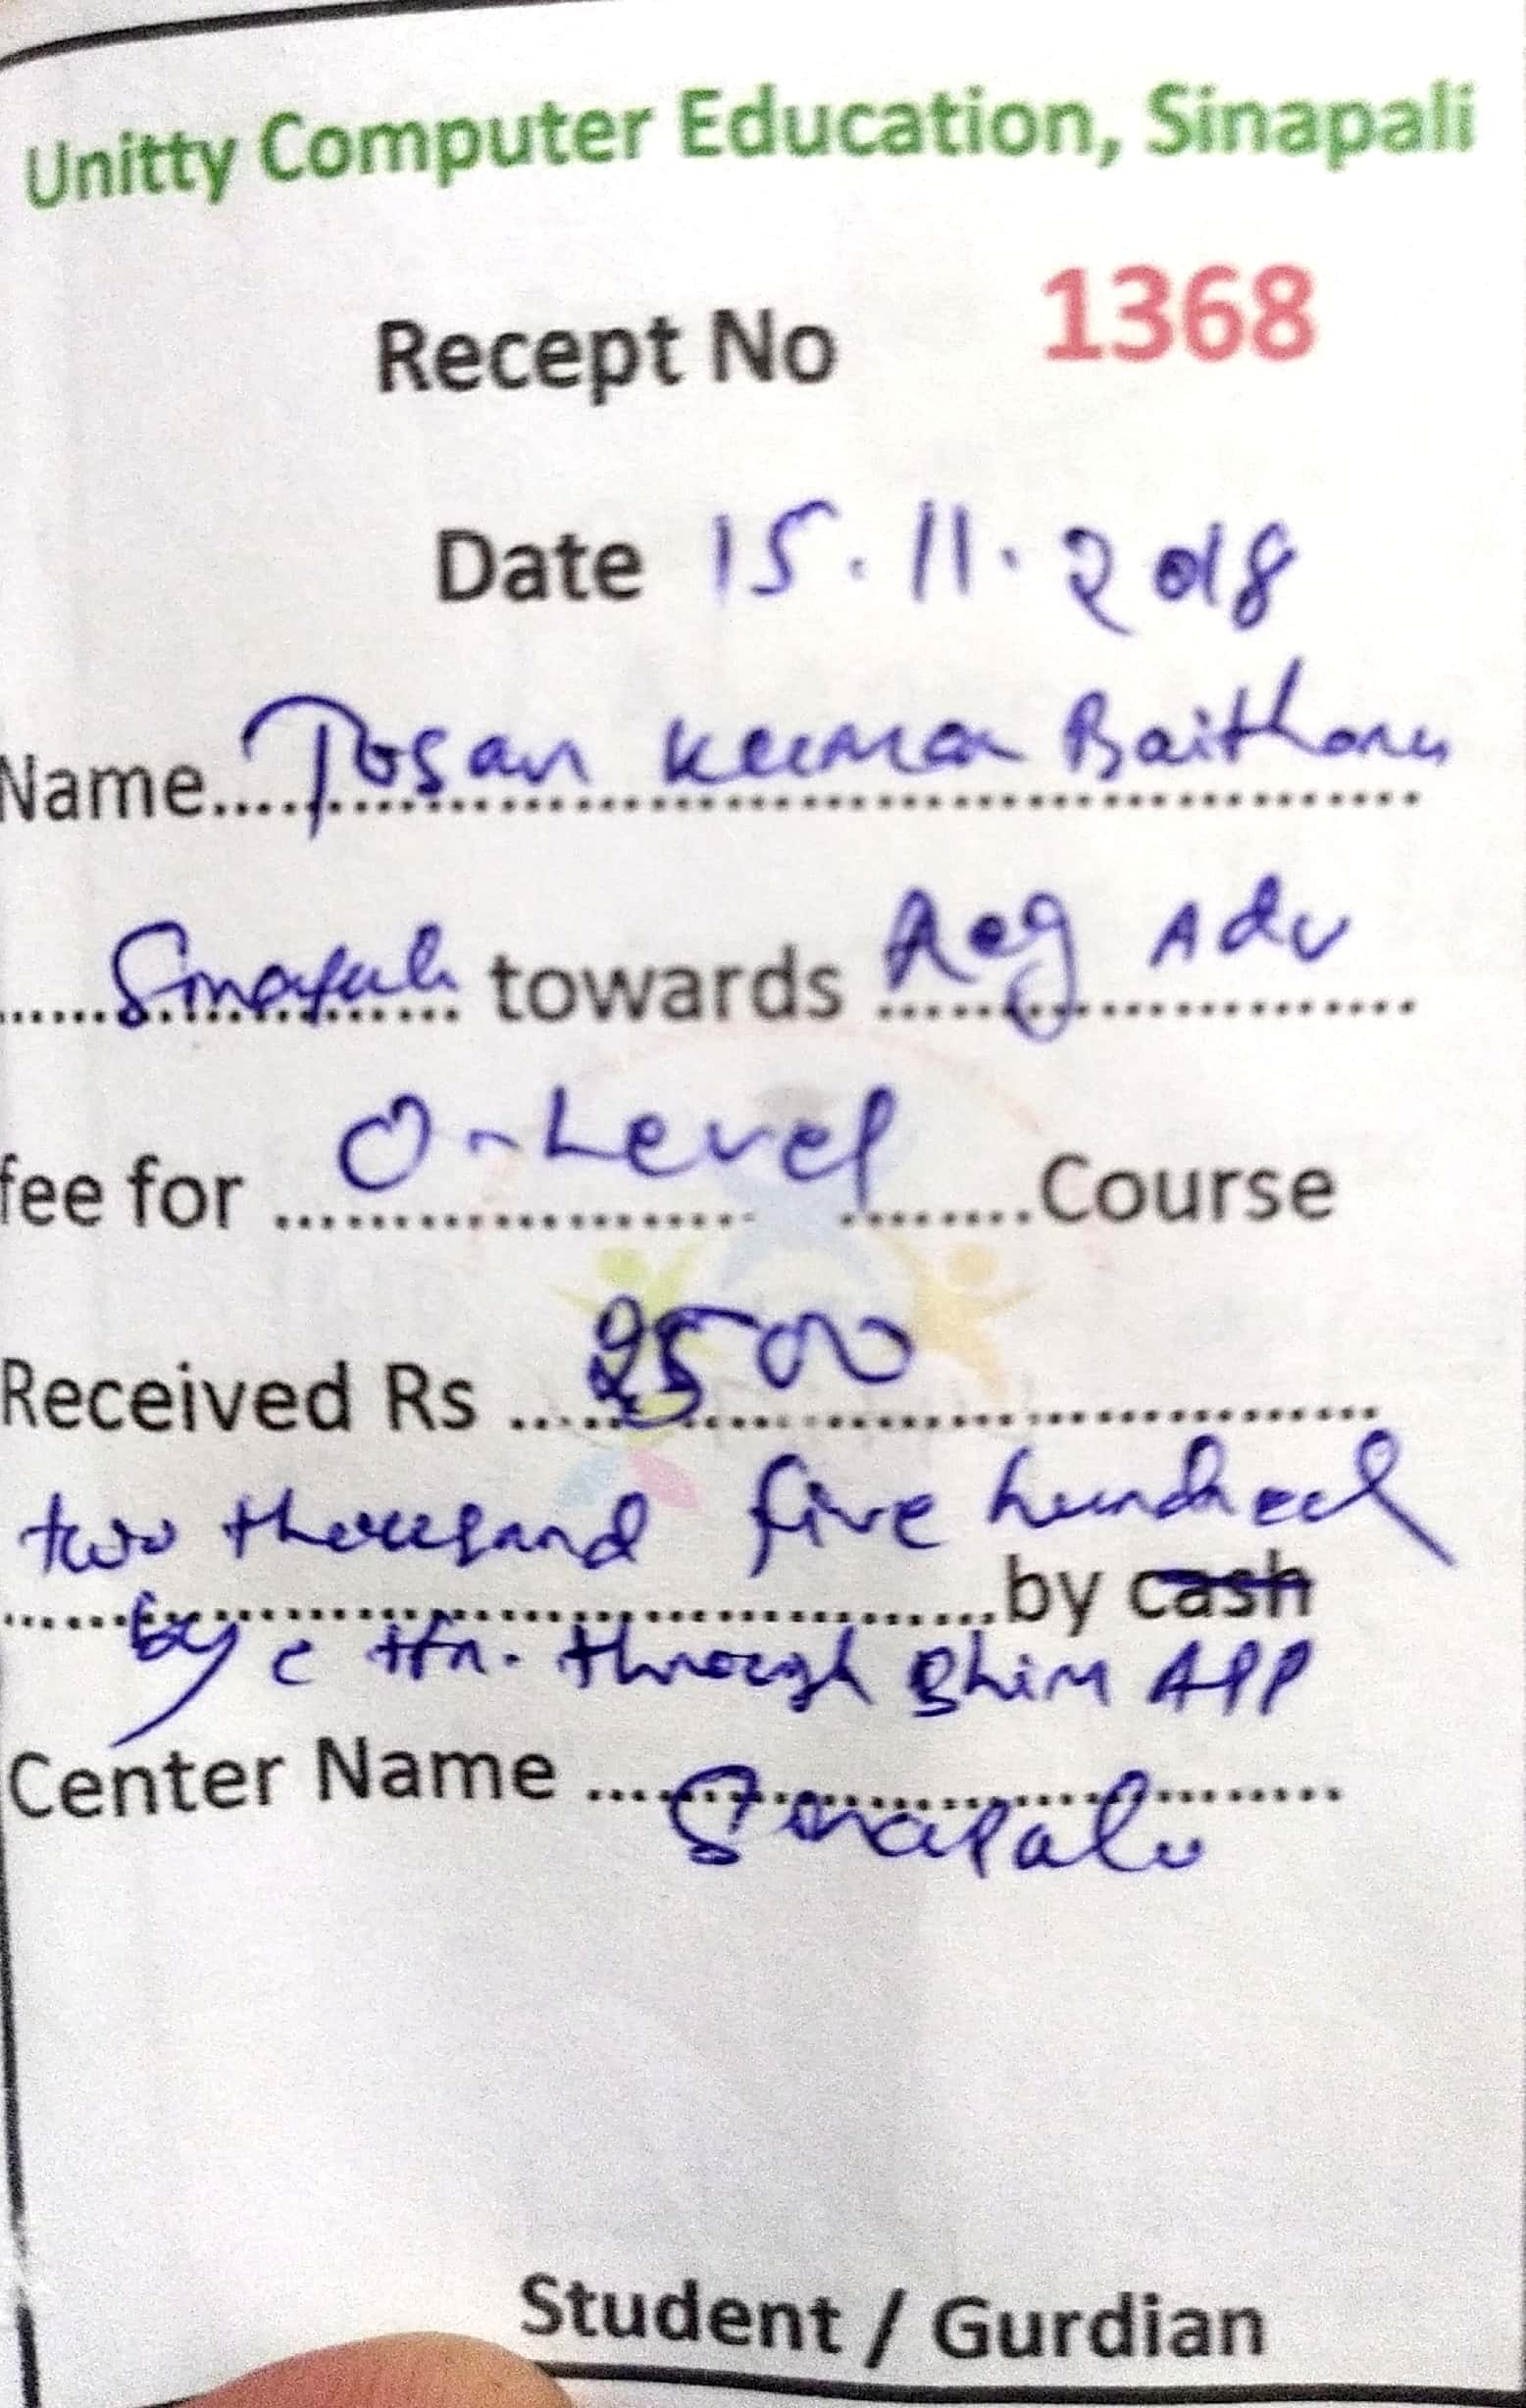 Unitty Computer Education, Sinapali
Recept No 1368
Date 15.11.2018
Name.... Tosan Kumar Baitharu
Sinapali towards Reg Adv
fee for O-Level Course
Received Rs 2500
two thousand five hundred
by cash
by e tfr. through Bhim APP
Center Name Sinapali
Student / Gurdian